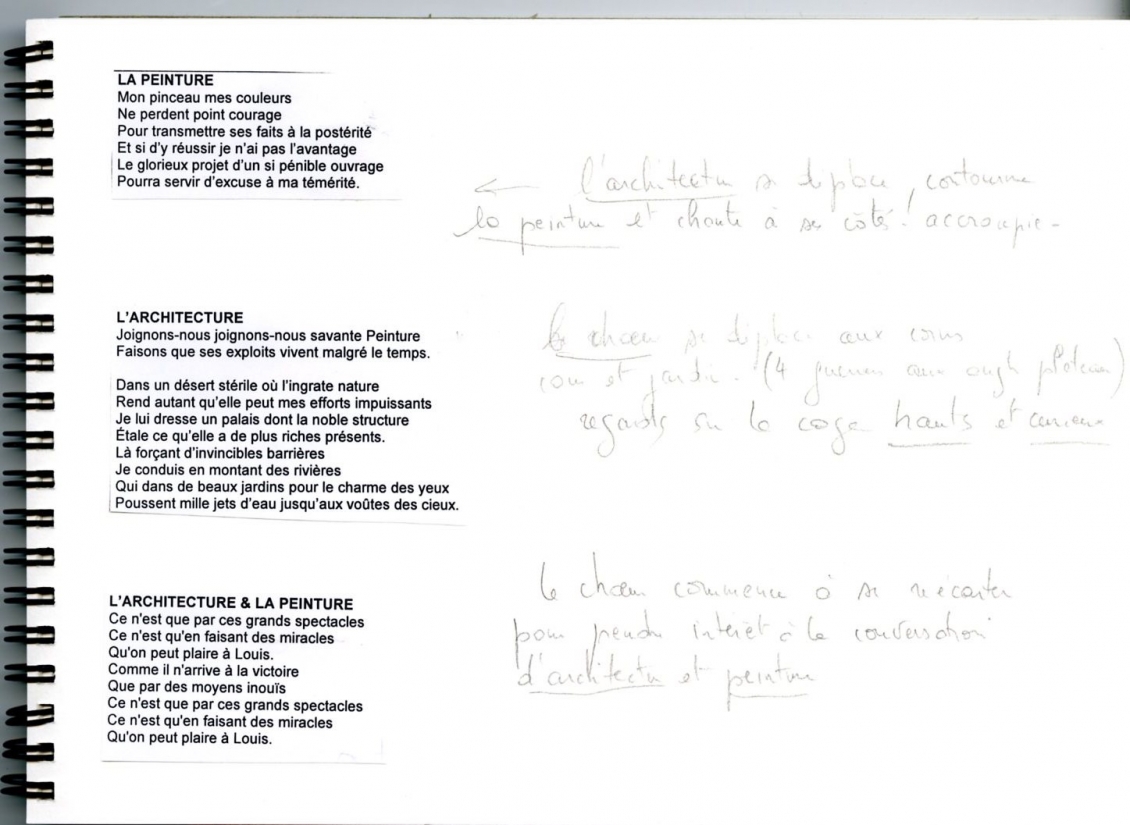 LA PEINTURE
Mon pinceau mes couleurs
Ne perdent point courage
Pour transmettre ses faits à la postérité
Et si d'y réussir je n'ai pas l'avantage
Le glorieux projet d'un si pénible ouvrage
Pourra servir d'excuse à ma témérité.
← l'architecture se déplace, contourne
la peinture et chante à ses côtés. accroupie -
L'ARCHITECTURE
Joignons-nous joignons-nous savante Peinture
Faisons que ses exploits vivent malgré le temps.
Dans un désert stérile où l'ingrate nature
Rend autant qu'elle peut mes efforts impuissants
Je lui dresse un palais dont la noble structure
Étale ce qu'elle a de plus riches présents.
Là forçant d'invincibles barrières
Je conduis en montant des rivières
Qui dans de beaux jardins pour le charme des yeux
Poussent mille jets d'eau jusqu'aux voûtes des cieux.
le chœur se déplace aux coins
cour et jardin. (4 aux plateau)
regards sur la cage hauts et curieux
L'ARCHITECTURE & LA PEINTURE
Ce n'est que par ces grands spectacles
Ce n'est qu'en faisant des miracles
Qu'on peut plaire à Louis.
Comme il n'arrive à la victoire
Que par des moyens inouïs
Ce n'est que par ces grands spectacles
Ce n'est qu'en faisant des miracles
Qu'on peut plaire à Louis.
le chœur commence à se
pour prendre intérêt à la conversation
d'architecture et peinture